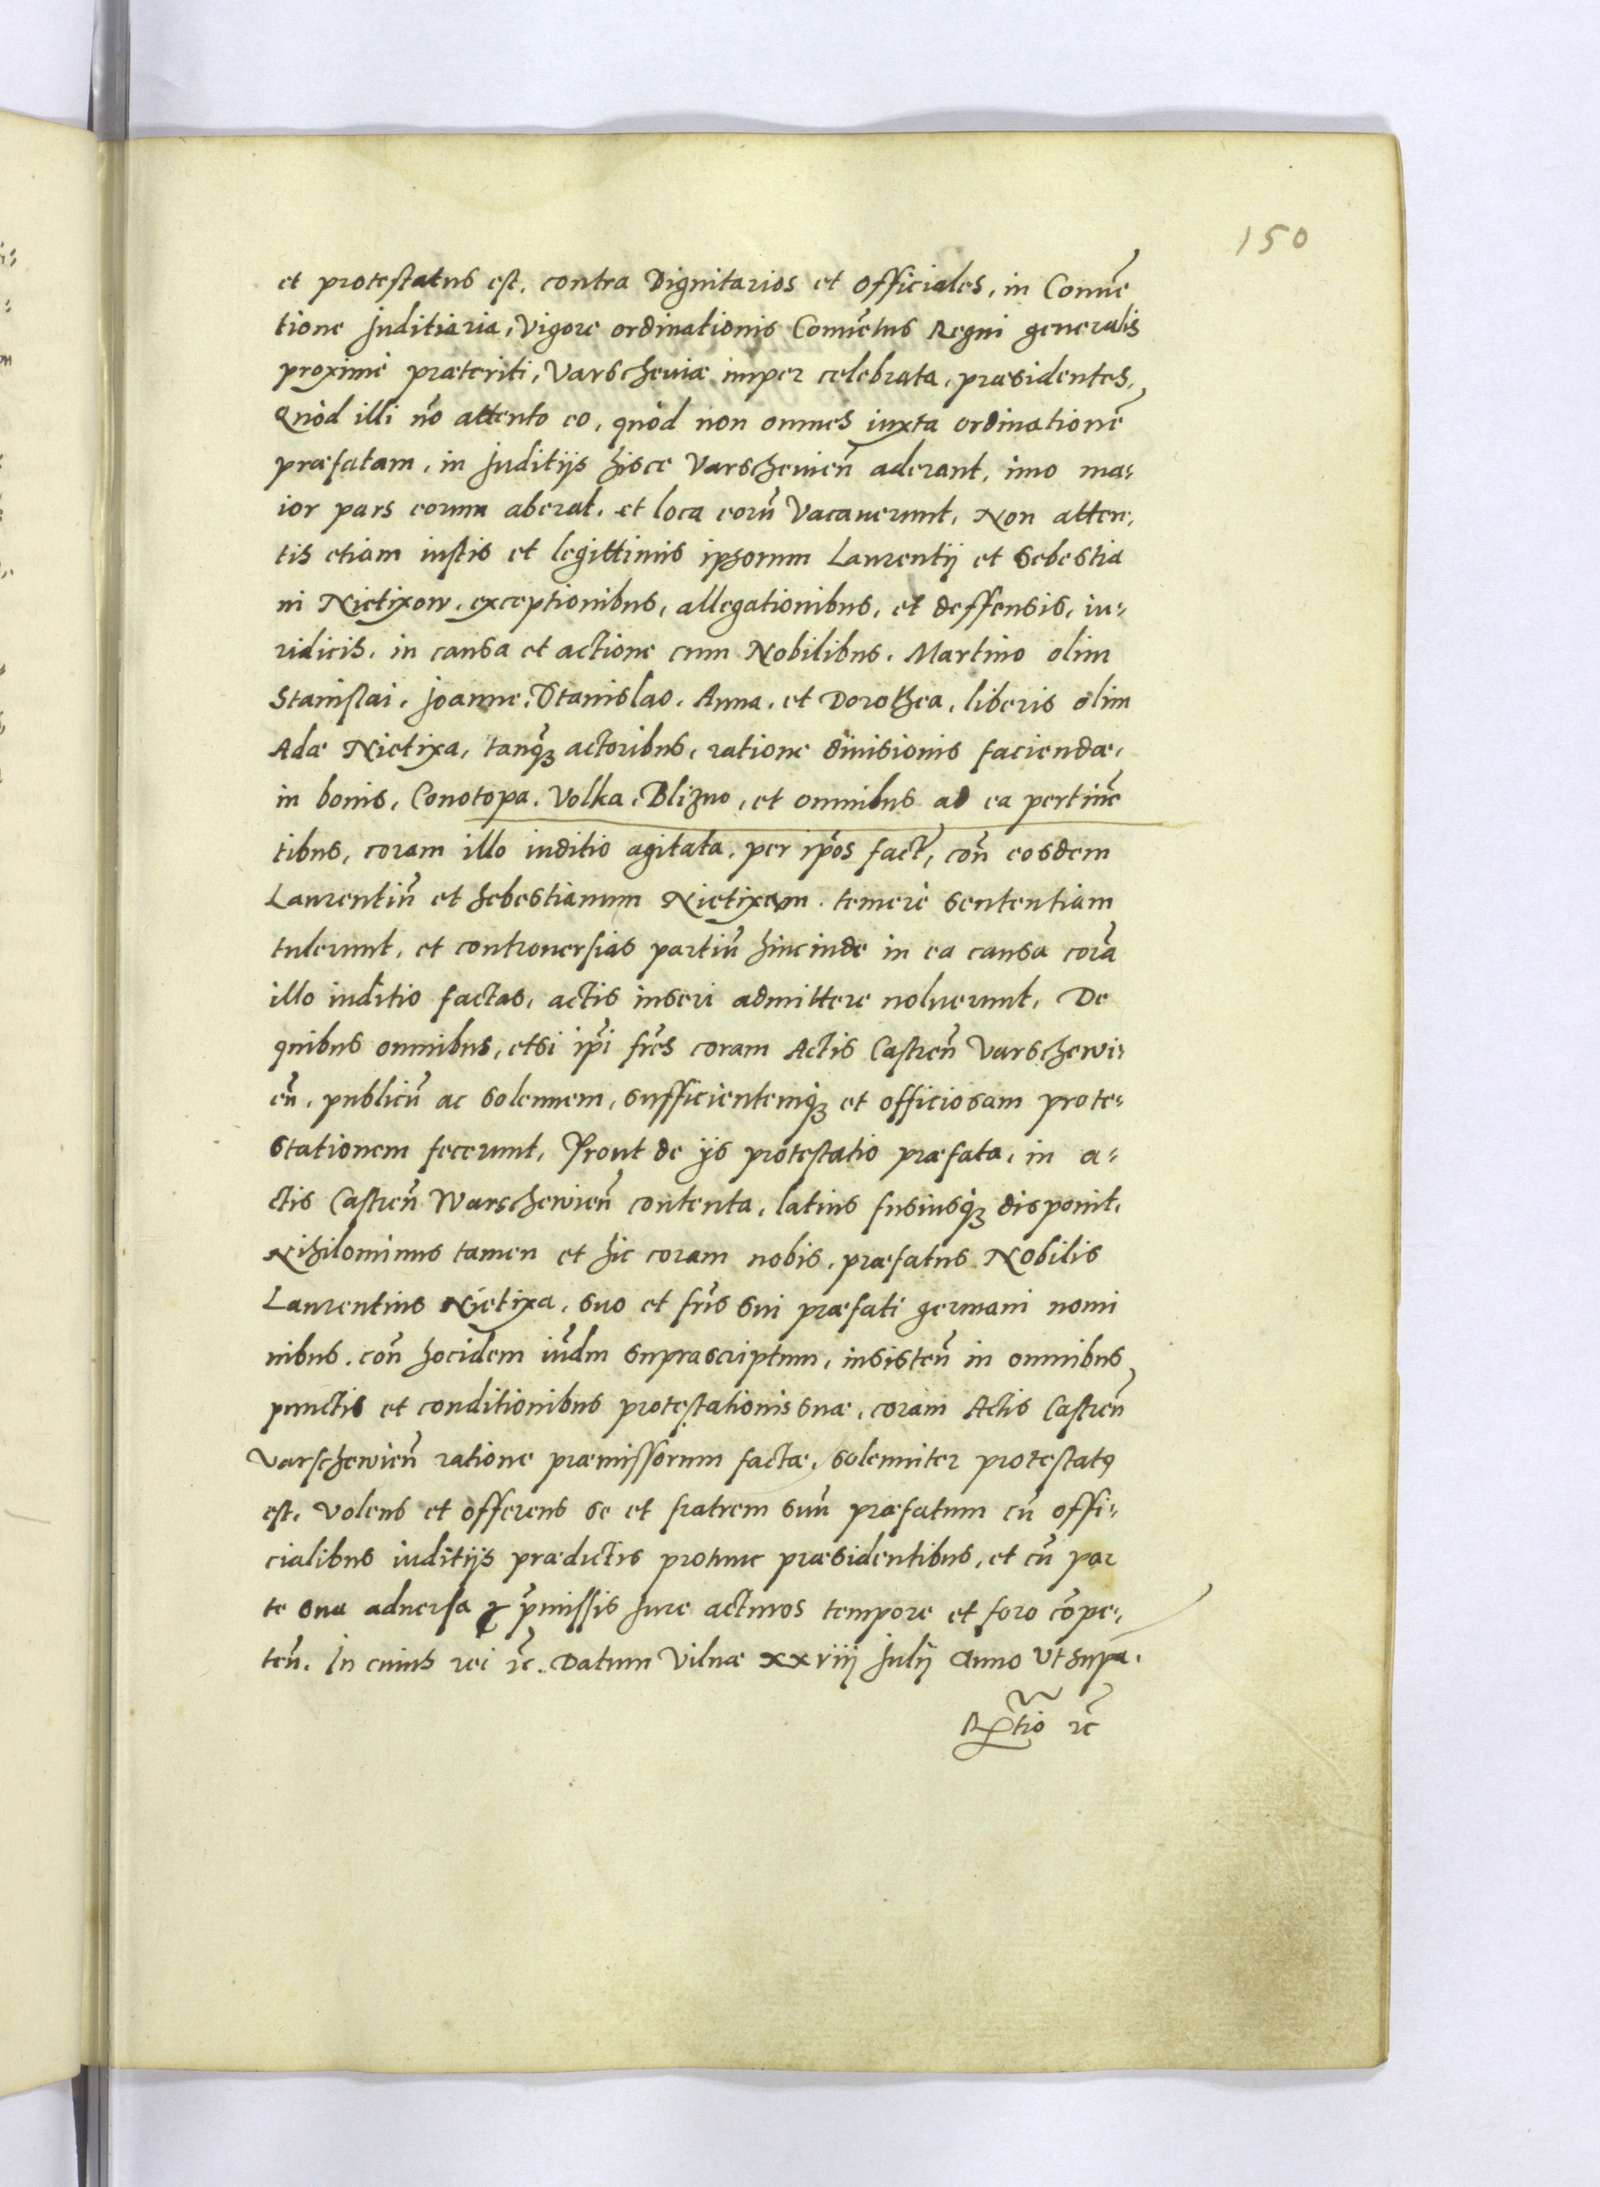 150
et protestatus est, contra Dignitarios et officiales, in Conuẽ
tione Juditiaria, Vigore ordinationis Conuẽtus Regni generalis
proximè præteriti, Varscheuiæ nuper celebrata, præsidentes,
Quòd illi nõ attento eo, quòd non omnes iuxta ordinationẽ
præfatam, in Juditijs hisce Varscheuieñ aderant, imo ma-
ior pars eorum aberat, et loca eorũ Vacauerunt, Non atten-
tis etiam iustis et legittimis ipsorum Laurentij et Sebestia
ni Nietixow, exceptionibus, allegationibus, et deffensis, iu-
ridicis, in causa et actione cum Nobilibus, Martino olim
Stanislai, Joanne, Stanislao, Anna, et Dorothea, liberis olim
Adæ Nietixa, tanq̃ꝫ actoribus, ratione diuisionis faciendæ,
in bonis, Conotopa, Volka, Blizno, et omnibus ad ea pertinẽ
tibus, coram illo iuditio agitata, per ip̃os fact̃, coñ eosdem
Laurentiũ et Sebestianum Nietixow temerè sententiam
tulerunt, et controuersias partiũ hincinde in ea causa corã
illo iuditio factas, actis inseri admittere noluerunt, De
quibus omnibus, etsi ip̃i fr̃es coram Actis Castreñ Varschewi-
eñ, publicũ ac solennem, sufficientemq̃ꝫ et officiosam prote-
stationem fecerunt, Prout de ijs protestatio præfata, in a-
ctis Castreñ Warschewieñ contenta, latius fusiusq̃ꝫ disponit,
Nihilominus tamen et hic coram nobis, præfatus Nobilis
Laurentius Nietixa, suo et fr̃is sui præfati germani nomi
nibus, coñ hocidem iũdm suprascriptum, insisteñ in omnibus
punctis et conditionibus protestationis suæ, coram Actis Castreñ
Varschewieñ ratione præmissorum factæ, solenniter protestatꝰ
est, Volens et offerens se et fratrem suũ præfatum cũ offi-
cialibus iuditijs prædictis protunc præsidentibus, et cũ par
te sua aduersa ꝑ p̃missis Jure acturos tempore et foro cõpe-
teñ. In cuius rei ꝛc̃. Datum Vilnæ xxviij Julij Anno Vt supᵃ.
Rp̃tio ꝛc̃